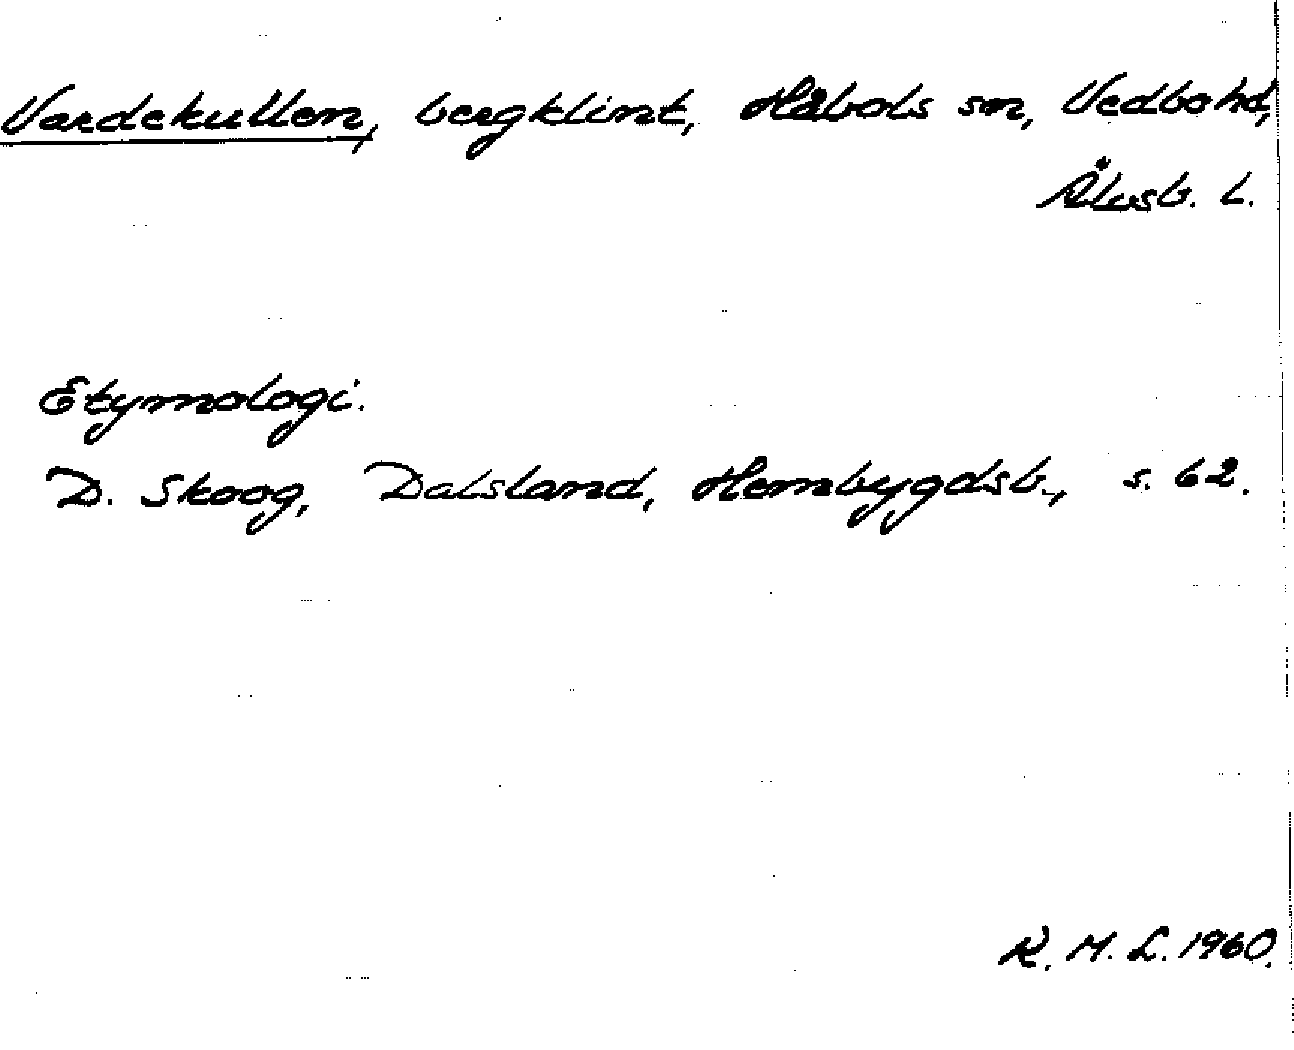 Vardekullen, bergklint, Håbols sn, Vedbo hd,
Älvsb. L.
Etymologi.
D. Skoog, Dalsland, Hembygdsb., s. 62.
K. M. L. 1960.